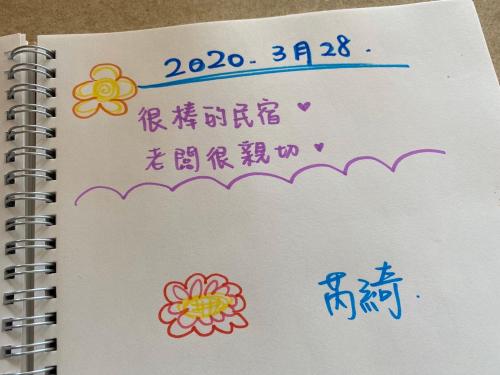 2020.3月28.
很棒的民宿♥
老闆很親切♥
芮綺.